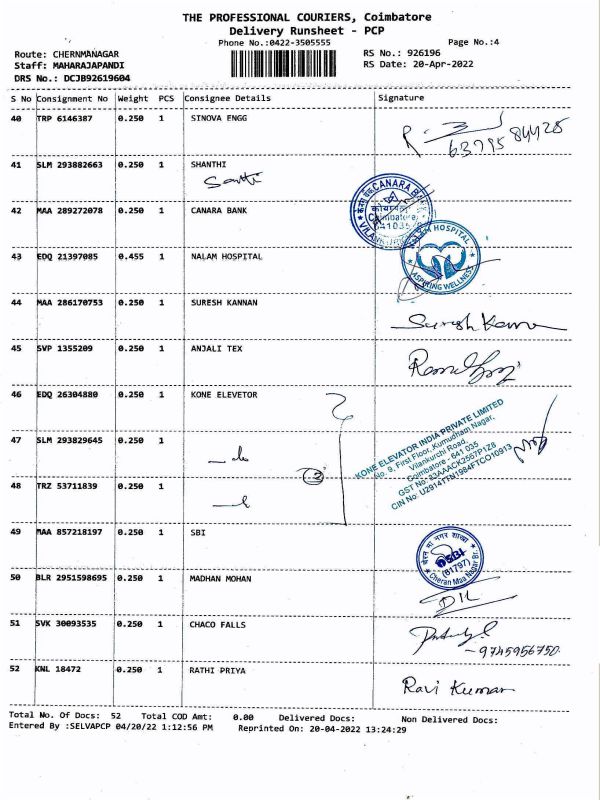 THE PROFESSIONAL COURIERS, Coimbatore
Delivery Runsheet - PCP
Phone No.:0422-3505555 Page No.:4
Route: CHERNMANAGAR RS No.: 926196
Staff: MAHARAJAPANDI RS Date: 20-Apr-2022
DRS No.: DCJB92619604
S No Consignment No Weight PCS Consignee Details Signature
40 TRP 6146387 0.250 1 SINOVA ENGG
41 SLM 293882663 0.250 1 SHANTHI
42 MAA 289272078 0.250 1 CANARA BANK
CANARA
Coimbatore
43 EDQ 21397085 0.455 1 NALAM HOSPITAL
NALAM HOSPITAL
ASPIRING WELLNESS
44 MAA 286170753 0.250 1 SURESH KANNAN
45 SVP 1355209 0.250 1 ANJALI TEX
46 EDQ 26304880 0.250 1 KONE ELEVETOR
KONE ELEVATOR INDIA PRIVATE LIMITED
No. 9, First Floor, Kumudham Nagar,
Vilankurchi Road,
Coimbatore - 641 035
CIN No: U29141TN1984FTCO10913
47 SLM 293829645 0.250 1
48 TRZ 53711839 0.250 1
2
49 MAA 857218197 0.250 1 SBI
SBI
(61797)
Cheran Maa Nagar Br.
50 BLR 2951598695 0.250 1 MADHAN MOHAN
51 SVK 30093535 0.250 1 CHACO FALLS
- 9745956750
52 KNL 18472 0.250 1 RATHI PRIYA
Ravi Kumar
Total No. Of Docs: 52 Total COD Amt: 0.00 Delivered Docs: Non Delivered Docs:
Entered By :SELVAPCP 04/20/22 1:12:56 PM Reprinted On: 20-04-2022 13:24:29